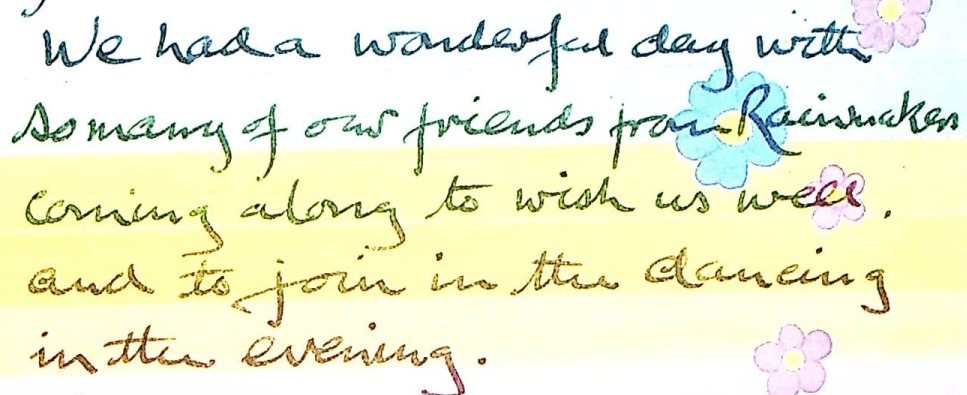 We had a wonderful day with
so many of our friends from Rainmakers
coming along to wish us well.
and to join in the dancing
in the evening.